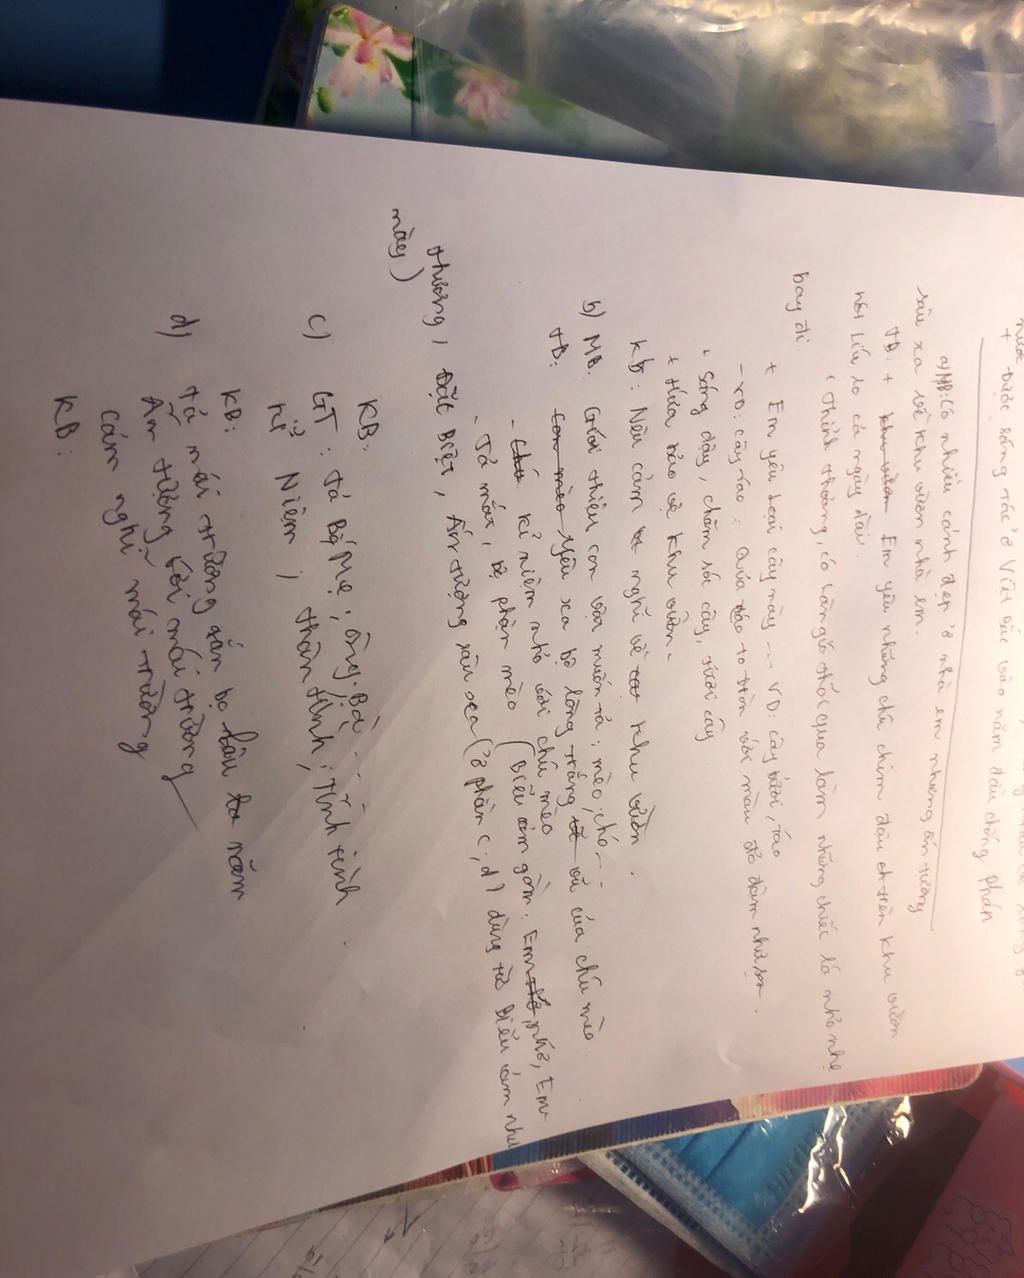 + Được sáng tác ở Việt Bắc vào năm đầu chống Pháp.
a) MB: Có nhiều cảnh đẹp ở nhà em nhưng ấn tượng
sâu xa về khu vườn nhà em.
TB: + khu vườn Em yêu những chú chim đậu ch trên khu vườn
hót líu lo cả ngày dài.
, thỉnh thoảng, có làn gió thổi qua làm những chiếc lá nhỏ nhẹ
bay đi.
+ Em yêu loại cây này ... VD: cây bưởi, táo
- VD: cây táo: Quả táo to tròn với màu đỏ đậm như son.
+ Sáng dậy, chăm sóc cây, tưới cây
+ Hứa bảo vệ khu vườn.
KB: Nêu cảm nghĩ về khu vườn.
b) MB: Giới thiệu con vật muốn tả: mèo, chó...
TB: Con mèo Yêu xa bộ lông trắng của chú mèo.
- Chú kỉ niệm nhỏ với chú mèo
- Tả mắt, bộ phận mèo (Biểu cảm gồm: Em nhớ, Em
thương, Đặc Biệt, Ấn tượng sâu sea (ở phần c, d) dùng từ Biểu cảm như
này)
KB:
c) GT: tả Bố Mẹ, ông, Bà...
Kỉ Niệm, thân hình, tính tình.
KB:
d) tả mái trường gắn bó lâu năm
Ấn tượng với mái trường
cảm nghĩ mái trường
KB: